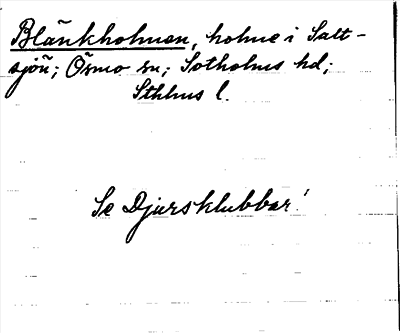 Blänkholmen, holme i Salt-
sjön; Ösmo sn; Sotholms hd;
Sthlms l.
Se Djursklubbar!